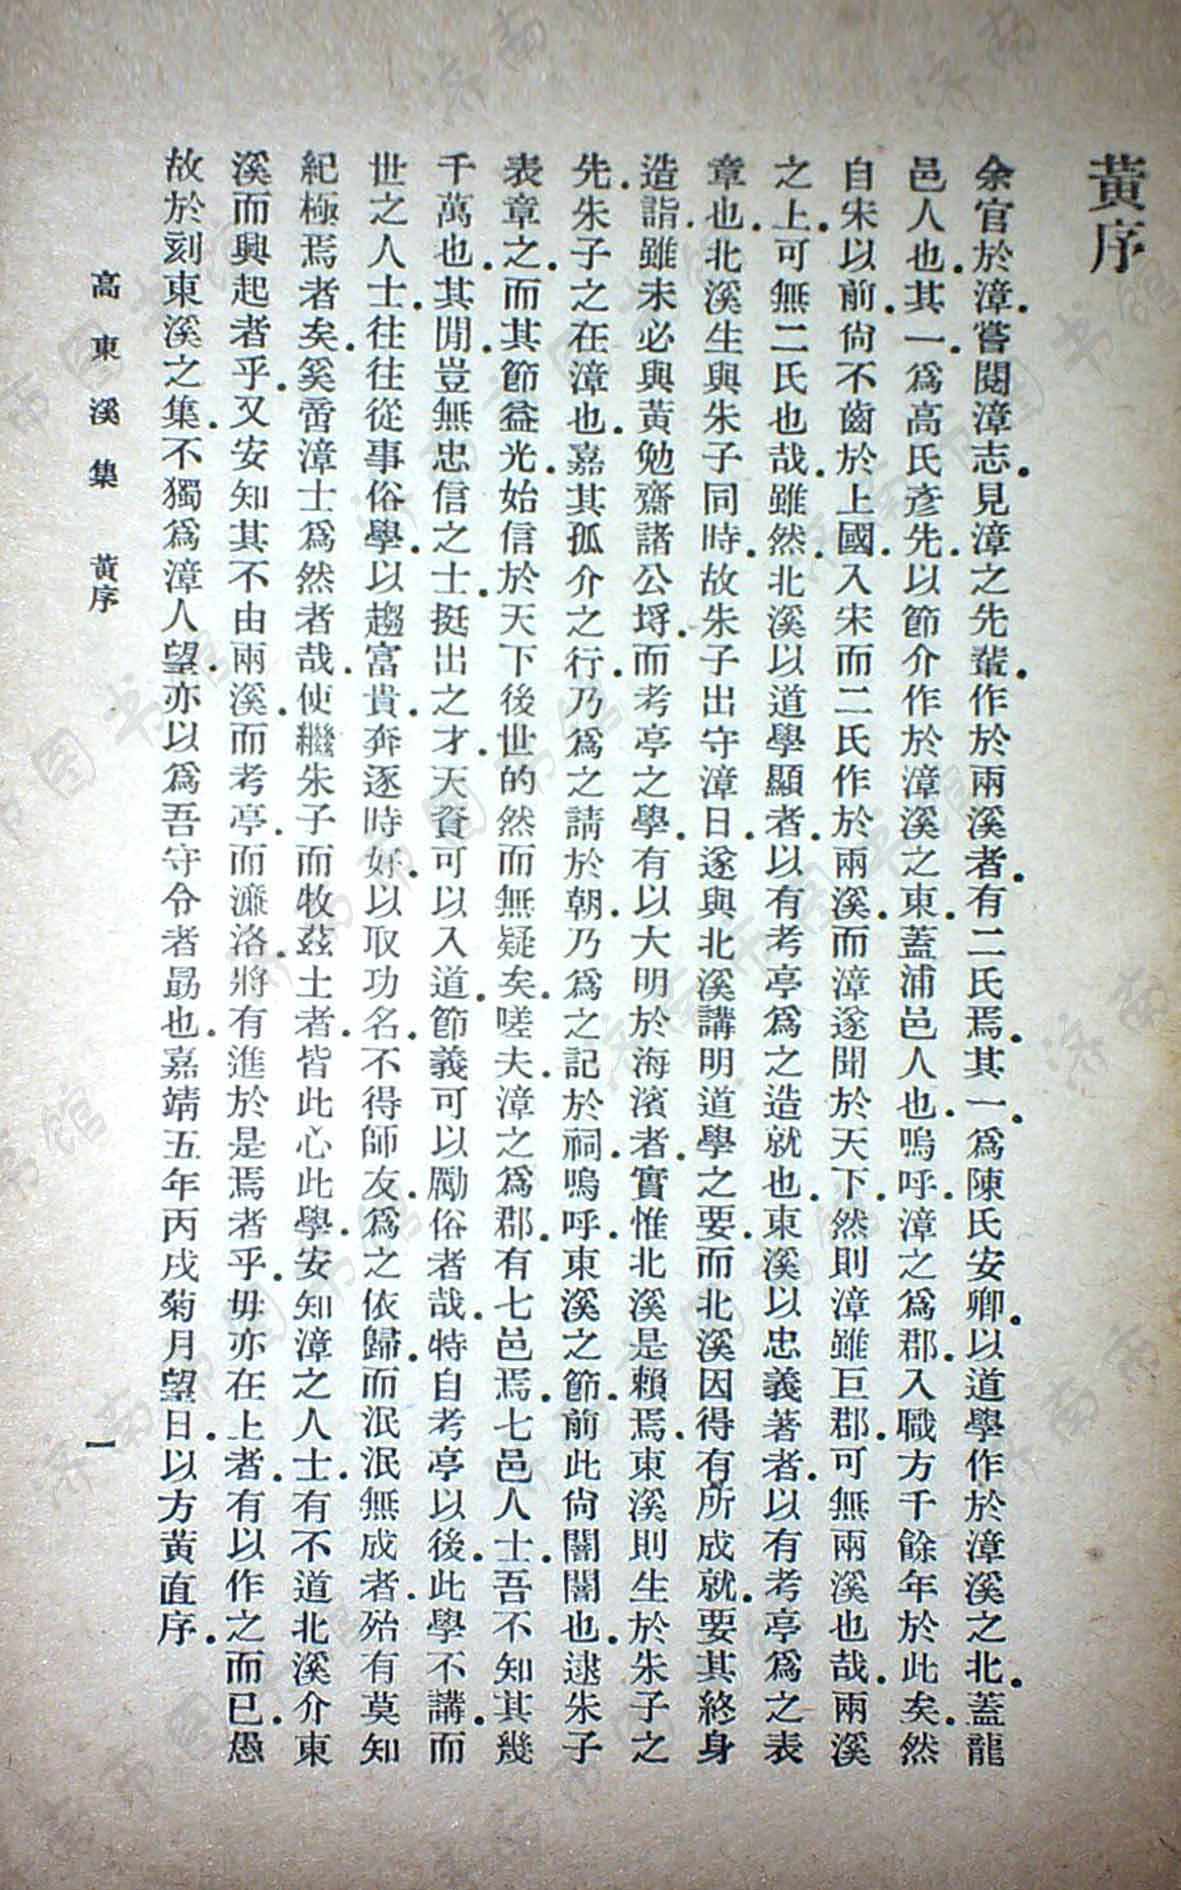 黃序
余官於漳.嘗閱漳志.見漳之先輩.作於兩溪者.有二氏焉.其一.爲陳氏安卿.以道學作於漳溪之北.蓋龍
邑人也.其一.爲高氏彥先.以節介作於漳溪之東.蓋浦邑人也.嗚呼.漳之爲郡.入職方千餘年於此矣.然
自宋以前.尙不齒於上國.入宋而二氏作於兩溪.而漳遂聞於天下.然則漳雖巨郡.可無兩溪也哉.兩溪
之上.可無二氏也哉.雖然.北溪以道學顯者.以有考亭爲之造就也.東溪以忠義著者.以有考亭爲之表
章也.北溪生與朱子同時.故朱子出守漳日.遂與北溪講明道學之要.而北溪因得有所成就.要其終身
造詣.雖未必與黃勉齋諸公埓.而考亭之學.有以大明於海濱者.實惟北溪是賴焉.東溪則生於朱子之
先.朱子之在漳也.嘉其孤介之行.乃爲之請於朝.乃爲之記於祠.嗚呼.東溪之節.前此尙闇闇也.逮朱子
表章之.而其節益光.始信於天下後世的然而無疑矣.嗟夫.漳之爲郡.有七邑焉.七邑人士.吾不知其幾
千萬也.其閒.豈無忠信之士.挺出之才.天資可以入道.節義可以勵俗者哉.特自考亭以後.此學不講.而
世之人士.往往從事俗學.以趨富貴.奔逐時好.以取功名.不得師友.爲之依歸.而泯泯無成者.殆有莫知
紀極焉者矣.奚啻漳士爲然者哉.使繼朱子而牧茲土者.皆此心此學.安知漳之人士.有不道北溪介東
溪而興起者乎.又安知其不由兩溪.而考亭.而濂洛.將有進於是焉者乎.毋亦在上者.有以作之而已.愚
故於刻東溪之集.不獨爲漳人望.亦以爲吾守令者勗也.嘉靖五年丙戌菊月望日.以方黃直序.
高東溪集 黃序 一